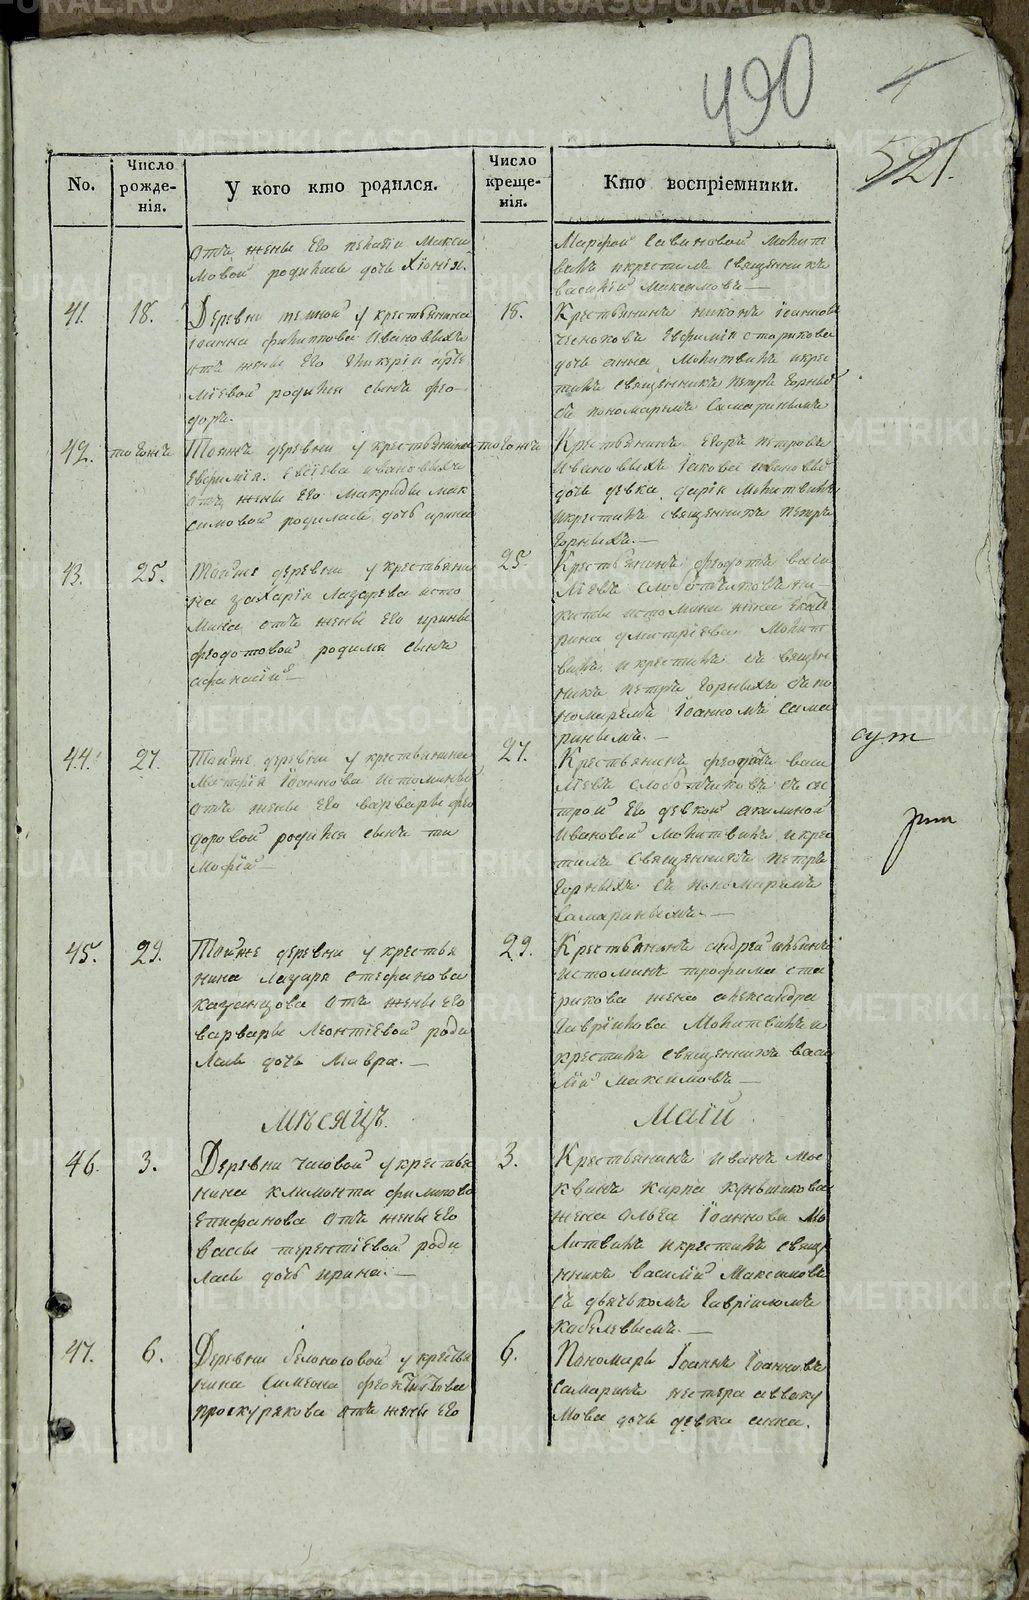 490
521.
No.
Число рожде-нія.
У кого кто родился.
Число креще-нія.
Кто воспріемники.
отъ жены его Макси
мовой родилась дочь Хіонія.
Марфой Савиновой молит
вилъ и крестилъ священникъ
василій Максимовъ —
41. 18.
Деревни у крестьянина
Іоанна филиппова Ивановыхъ
отъ жены его
родился сынъ фео
доръ.
18.
Крестьянинъ никонъ Іоанновъ
Евфимія старикова
дочь анна молитвилъ и крес
тилъ священникъ петръ Горныхъ
съ пономаремъ Самаринымъ
42. того жъ
Тояжъ деревни у крестьянина
Евфимія Ивановыхъ
отъ жены его Макриды мак
симовой родилась дочь ирина
того жъ
Крестьянинъ Егоръ петровъ
Ивановыхъ Іакова ивановыхъ
дочь девка дарія молитвилъ
и крестилъ священникъ петръ
Горныхъ. —
43. 25.
Тойже деревни у крестьяни
на захарія Лазарева исто
мина отъ жены его ирины
феодотовой родился сынъ
афанасій —
25
Крестьянинъ феодотъ васи
ліевъ слободчиковъ ни
киты истомина жена Екате
рина дмитріева молит
вилъ и крестилъ священ
никъ петръ Горныхъ съ по
номаремъ Іоанномъ сама
ринымъ. —
44. 27.
Тойже деревни у крестьянина
Іоаннова истомина
отъ жены его варвары фео
доровой родился сынъ ти
мофей —
27.
Крестьянинъ феодотъ васи
ліевъ слободчиковъ съ сес
трой его девкой акилиной
Ивановой молитвилъ и крес
тилъ священникъ петръ
Горныхъ съ пономаремъ
Самаринымъ. —
45. 29.
Тойже деревни у крестья
нина Лазаря стефанова
казанцова отъ жены его
варвары Леонтіевой роди
лась дочь Мавра. —
29.
Крестьянинъ андрей
истоминъ трофима ста
рикова жена александра
Гавріилова молитвилъ и
крестилъ священникъ васи
лій максимовъ —
Мѣсяцъ.
Маій
46. 3.
Деревни у крестья
нина климонта филипова
Епифанова отъ жены его
вассы терентіевой роди
лась дочь ирина. —
3.
Крестьянинъ иванъ мос
квинъ карпа кунщикова
жена ольга Іоаннова мо
литвилъ и крестилъ свяще
нникъ василій Максимовъ
съ дьячькомъ Гавріиломъ
кобелевымъ. —
47. 6.
Деревни белоносовой у крестья
нина Симеона феоктистова
проскурякова отъ жены его
6.
Пономарь Іоаннъ Іоанновъ
самаринъ нестера авваку
мова дочь девка анна.